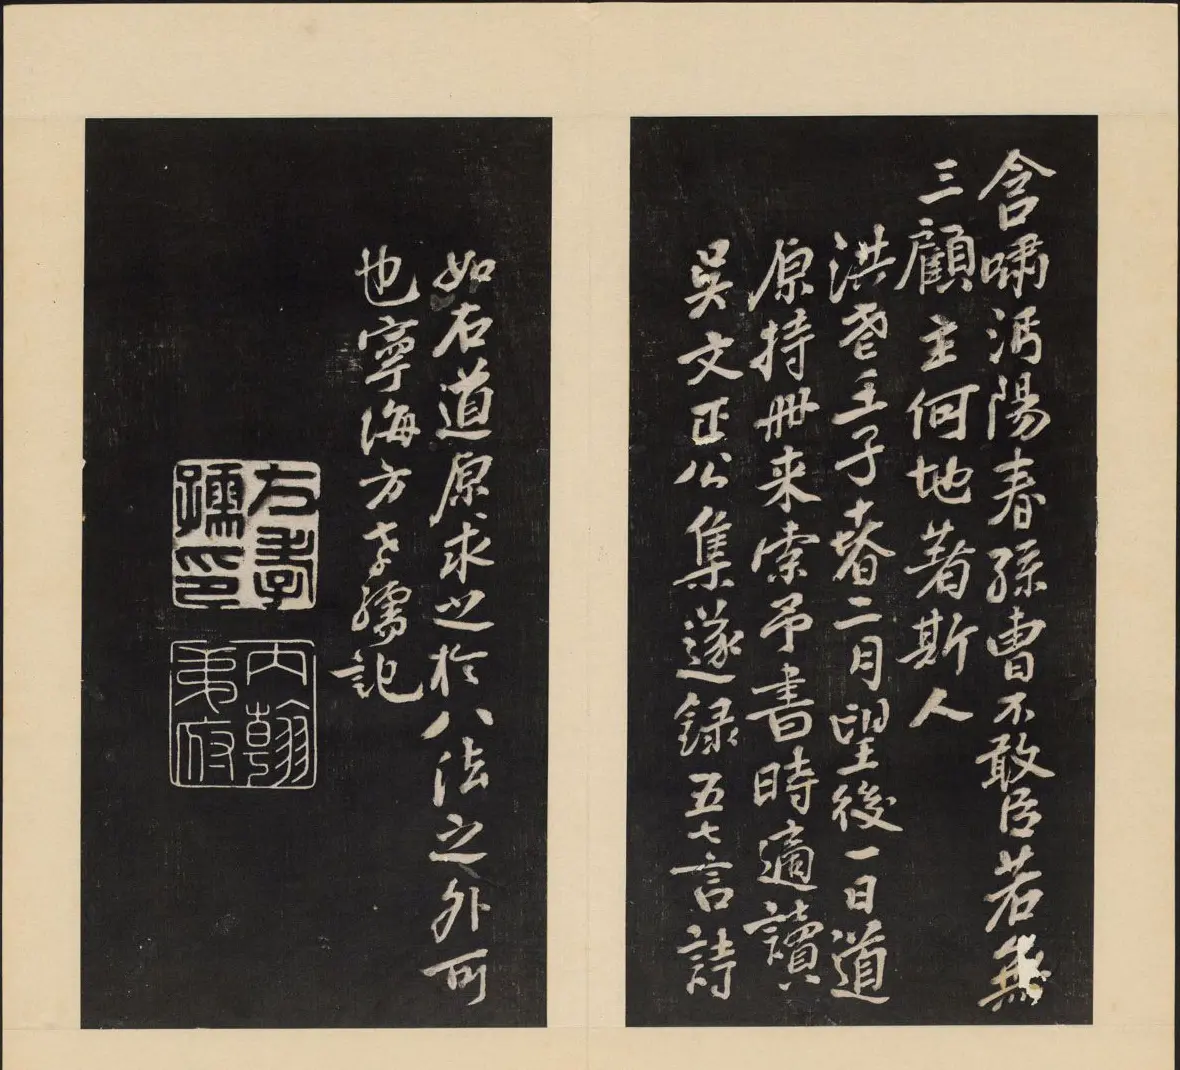 含嘯沔陽春孫曹不敢臣若無
三顧主何地著斯人
洪武壬子春二月望後一日道
原持冊来索予書時適讀
吳文正公集遂録五七言詩
如右道原求之於八法之外可
也寧海方孝孺記
方孝孺印
內翰